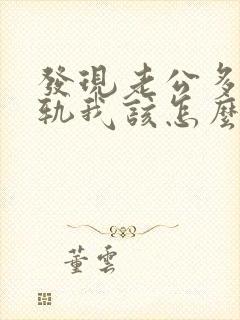 發現老公多
軌我該怎麼
董雲